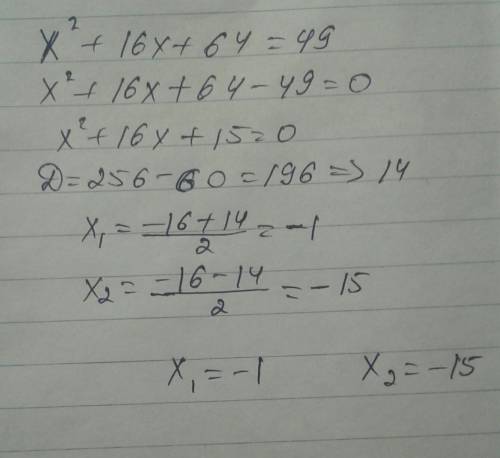 x² + 16x + 64 = 49
x² + 16x + 64 - 49 = 0
x² + 16x + 15 = 0
D = 256 - 60 = 196 => 14
x₁ = (-16 + 14)/2 = -1
x₂ = (-16 - 14)/2 = -15
x₁ = -1 x₂ = -15